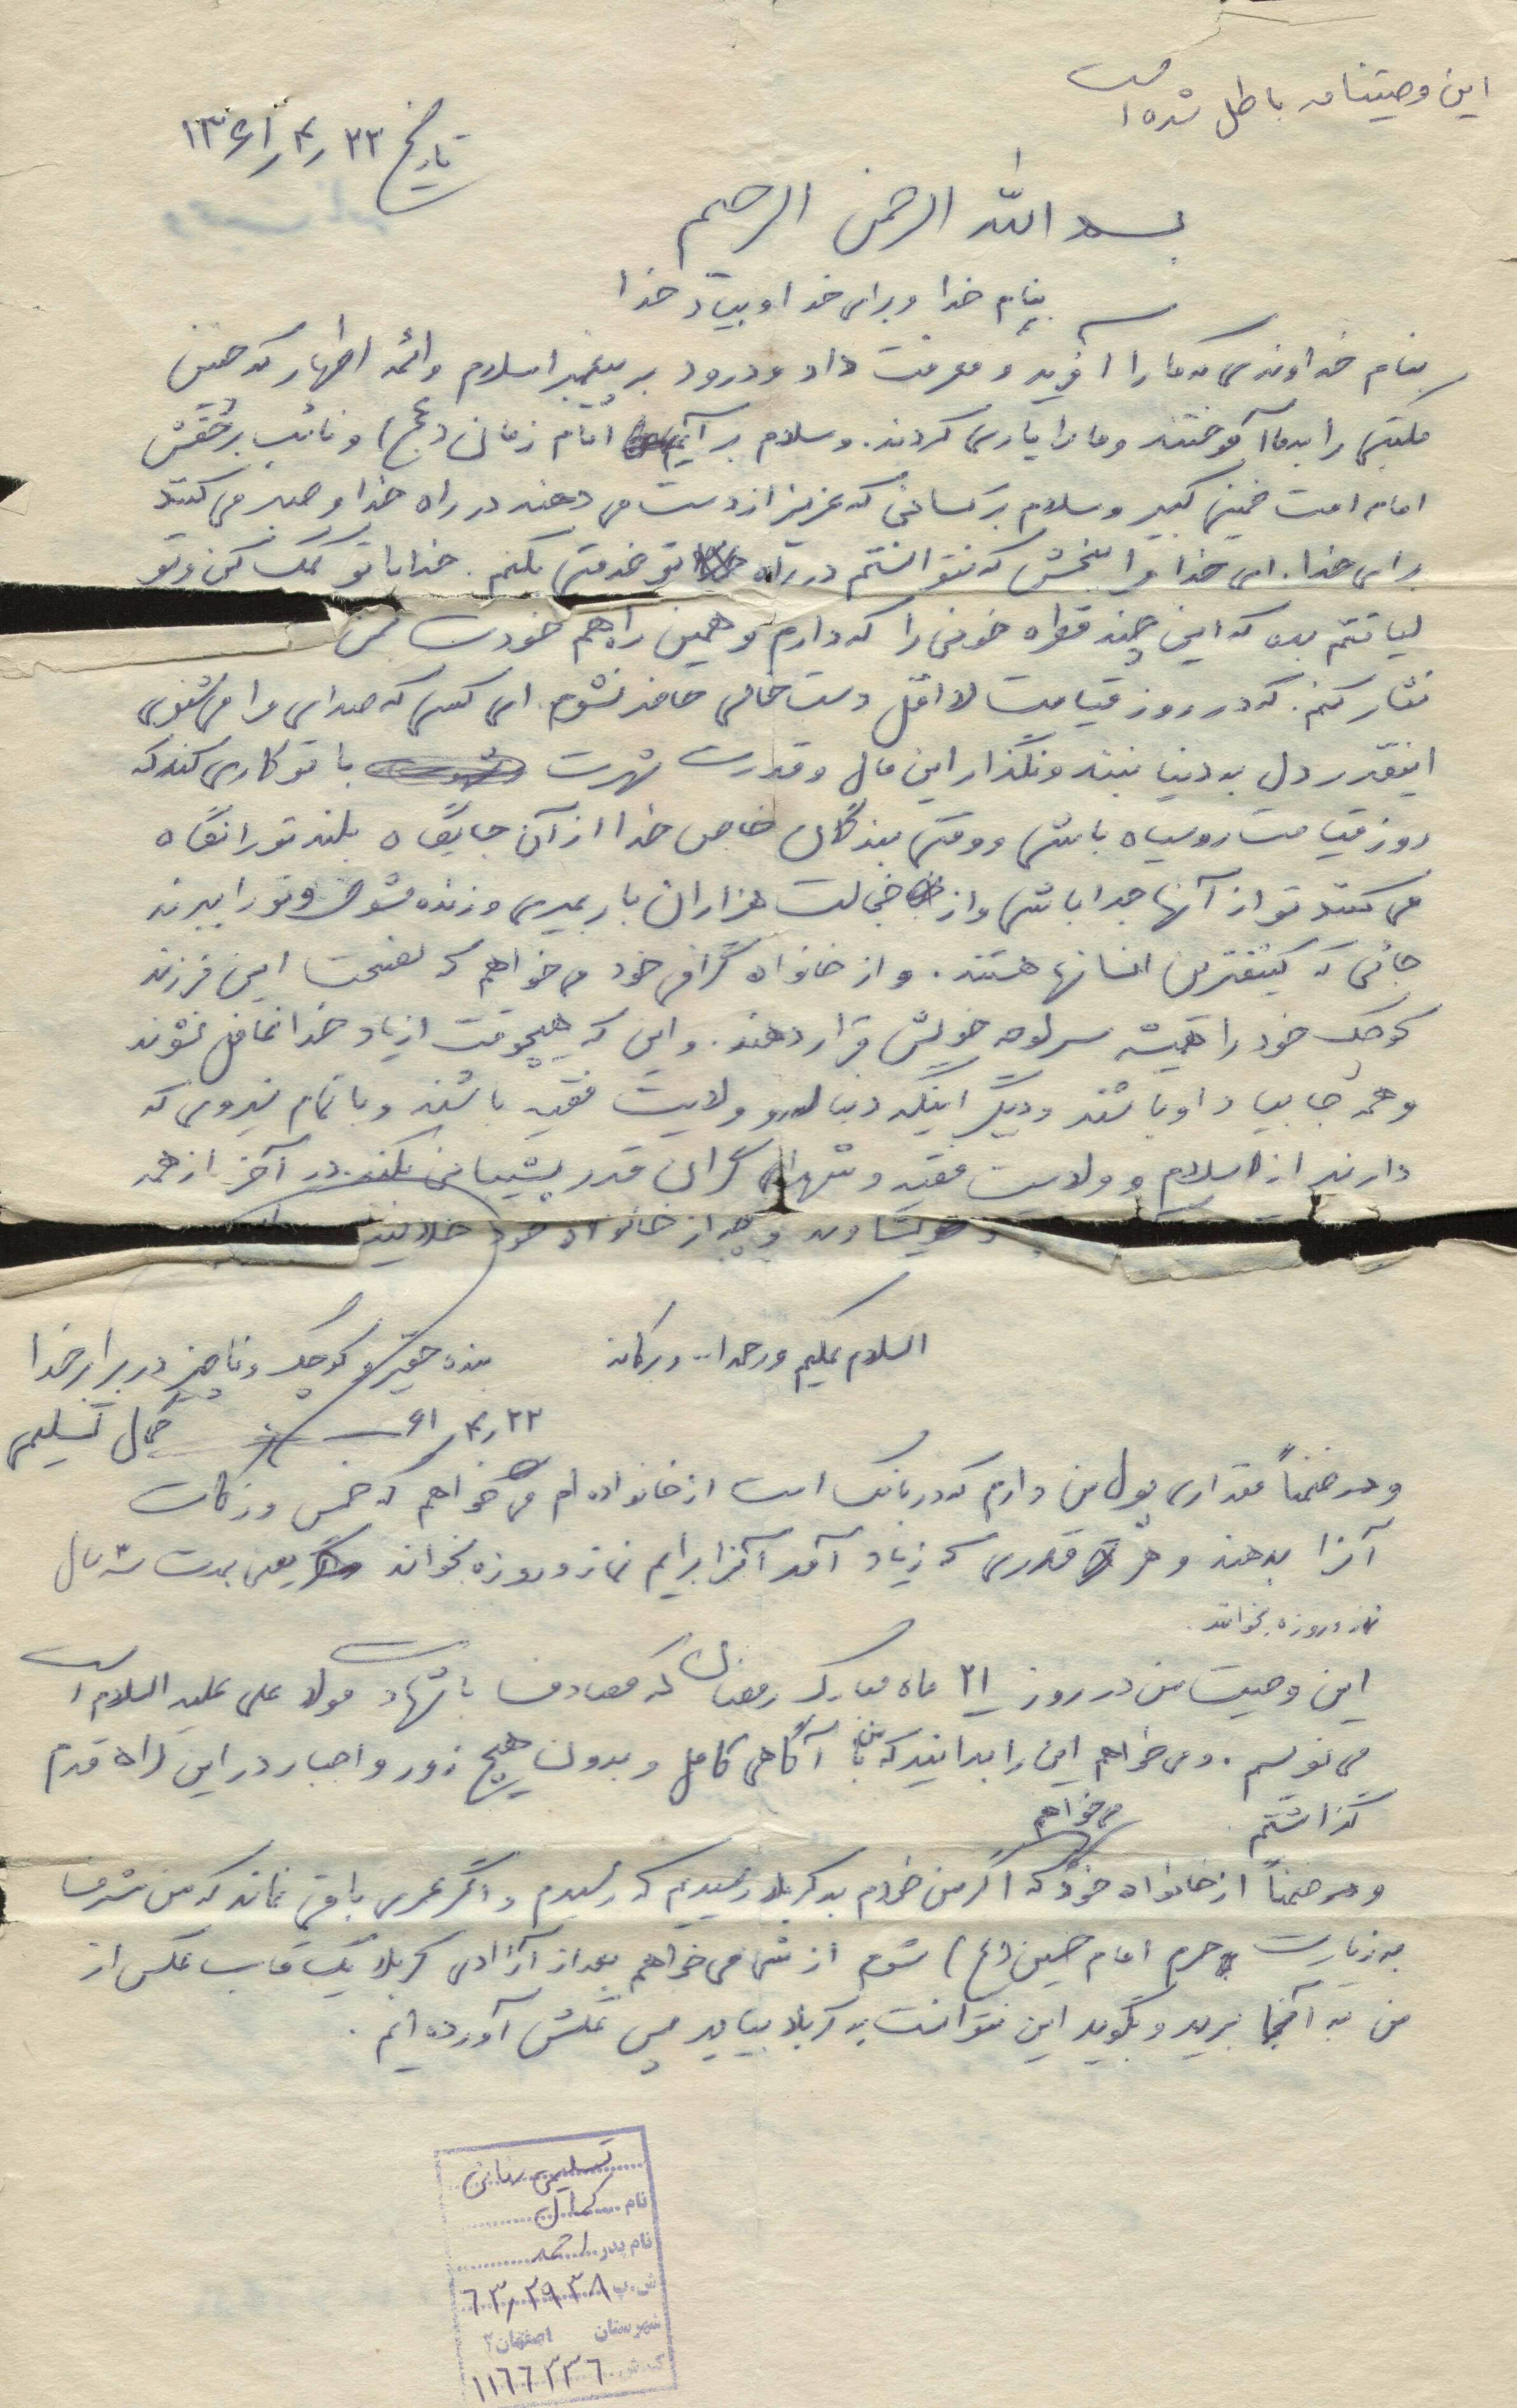 این وصیتنامه باطل شده است
تاریخ ۲۳ ر ۴ ر ۱۳۶۱
بسم الله الرحمن الرحیم
بنام خدا و برای خدا و بیاد خدا
بنام خداوندی که ما را آفرید و معرفت داد و درود بر پیغمبر اسلام و ائمه اطهار که چنین
مکتبی را به ما آموختند و ما را یاری کردند. و سلام بر امام زمان (عج) و نائب بر حقش
امام امت خمینی کبیر و سلام بر کسانی که عزیز از دست می دهند در راه خدا و صبر می کنند
برای خدا. ای خدا مرا ببخش که نتوانستم در راه تو خدمتی بکنم. خدایا تو کمک کن و تو
لیاقتم بده که این چند قطره خونی را که دارم و همین را هم خودت
نثار کنم. که در روز قیامت لااقل دست خالی حاضر نشوم. ای کسی که صدای مرا می شنوی
اینقدر دل به دنیا نبند و نگذار این مال و قدرت شهرت با تو کاری کند که
روز قیامت رو سیاه باشی و وقتی بندگان خاص خدا از آن جایگاه بلند تو را نگاه
می کنند تو از آنها جدا باشی و از خجالت هزاران بار بمیری و زنده شوی و تو را ببرند
جائی که کثیفترین انسانها هستند. و از خانواده گرامی خود می خواهم که نصیحت این فرزند
کوچک خود را همیشه سر لوحه خویش قرار دهند. و این که هیچوقت از یاد خدا غافل نشوند
و همه جا بیاد او باشند و دیگر اینکه دنباله رو ولایت فقیه باشند و با تمام نیروی که
دارند از اسلام و ولایت فقیه و شهدای گران قدر پشتیبانی بکنند. در آخر از همه
و خویشاوند و چه از خانواده خود
السلام علیکم و رحمه ا... و برکاته
بنده حقیر و کوچک و ناچیز در برابر خدا
۲۳ ر ۴ ر ۶۱
کمال تسلیمی
و در ضمناً مقداری پول من دارم که در بانک است از خانواده ام می خواهم که خمس و زکات
آنرا بدهند و هر قدری که زیاد آمد آنرا برایم نماز و روزه بخواند یعنی بمدت سه سال
نماز و روزه بخوانند.
این وصیت من در روز ۲۱ ماه مبارک رمضان که مصادف با شهادت مولا علی علیه السلام است
می نویسم. و می خواهم این را بدانید که من با آگاهی کامل و بدون هیچ زور و اجبار در این راه قدم
گذاشتم.
و در ضمناً از خانواده خود می خواهم که اگر من خودم به کربلا رسیدم که رسیدم و اگر عمری باقی نماند که من مشرف
به زیارت حرم امام حسین (ع) شوم از شما می خواهم بعد از آزادی کربلا یک قاب عکس از
من به آنجا ببرید و بگوید این نتوانست به کربلا بیاید پس عکسش آورده ایم.
تسلیمی
نام کمال
نام پدر احمد
ش.پ ۶۳٫۲۹۳۸
شهرستان اصفهان ۲
ک.ش ۱۱۶۶۳۳۶